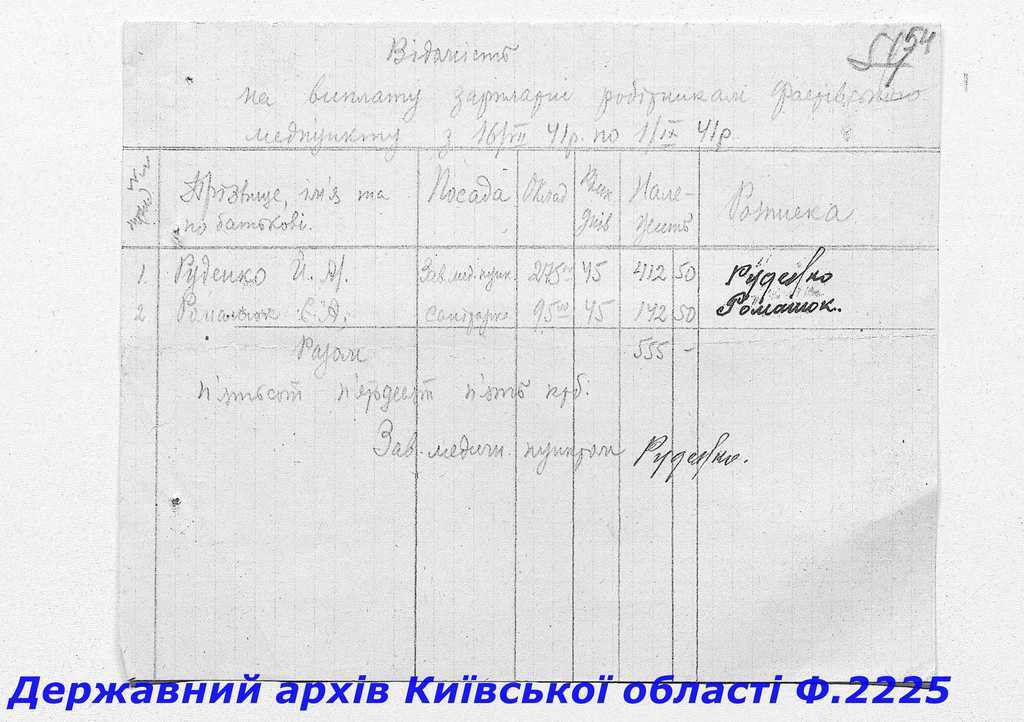 54
Відомість
на виплату зарплати робітникам Фастівського
медпункту з 16/VII 41р. по 1/IX 41р.
Прізвище, ім'я та по батькові. Посада Оклад Вих днів Належить Розписка
1 Руденко Й. А. Зав. мед. пунк. 275 00 45 412 50 Руденко
2 Романюк Є. А. санітарка 95 00 45 142 50 Романюк.
Разом 555 -
п'ятьсот п'ятдесят п'ять крб.
Зав. медичн. пунктом Руденко.
Державний архів Київської області Ф.2225